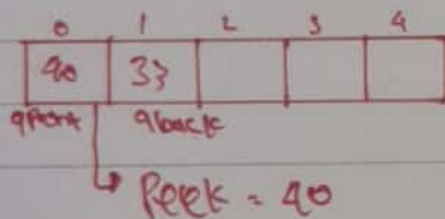 0 1 2 3 4
40 33
qfront qback
Peek = 40